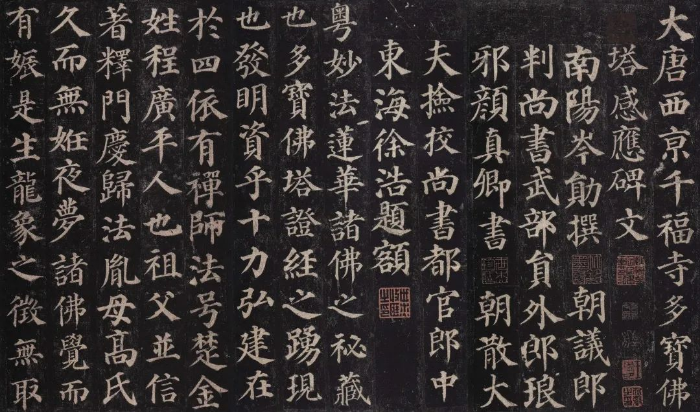 大唐西亰千福寺多寶佛
塔感應碑文
南陽岑勛撰 朝議郎
判尚書武部員外郎琅
邪顏真卿書 朝散大
夫撿挍尚書都官郎中
東海徐浩題額
粵妙法蓮華諸佛之秘藏
也多寶佛塔證經之踴現
也發明資乎十力弘建在
於四依有禪師法号楚金
姓程廣平人也祖父並信
著釋門慶歸法胤母髙氏
久而無姙夜夢諸佛覺而
有娠是生龍象之徵無取